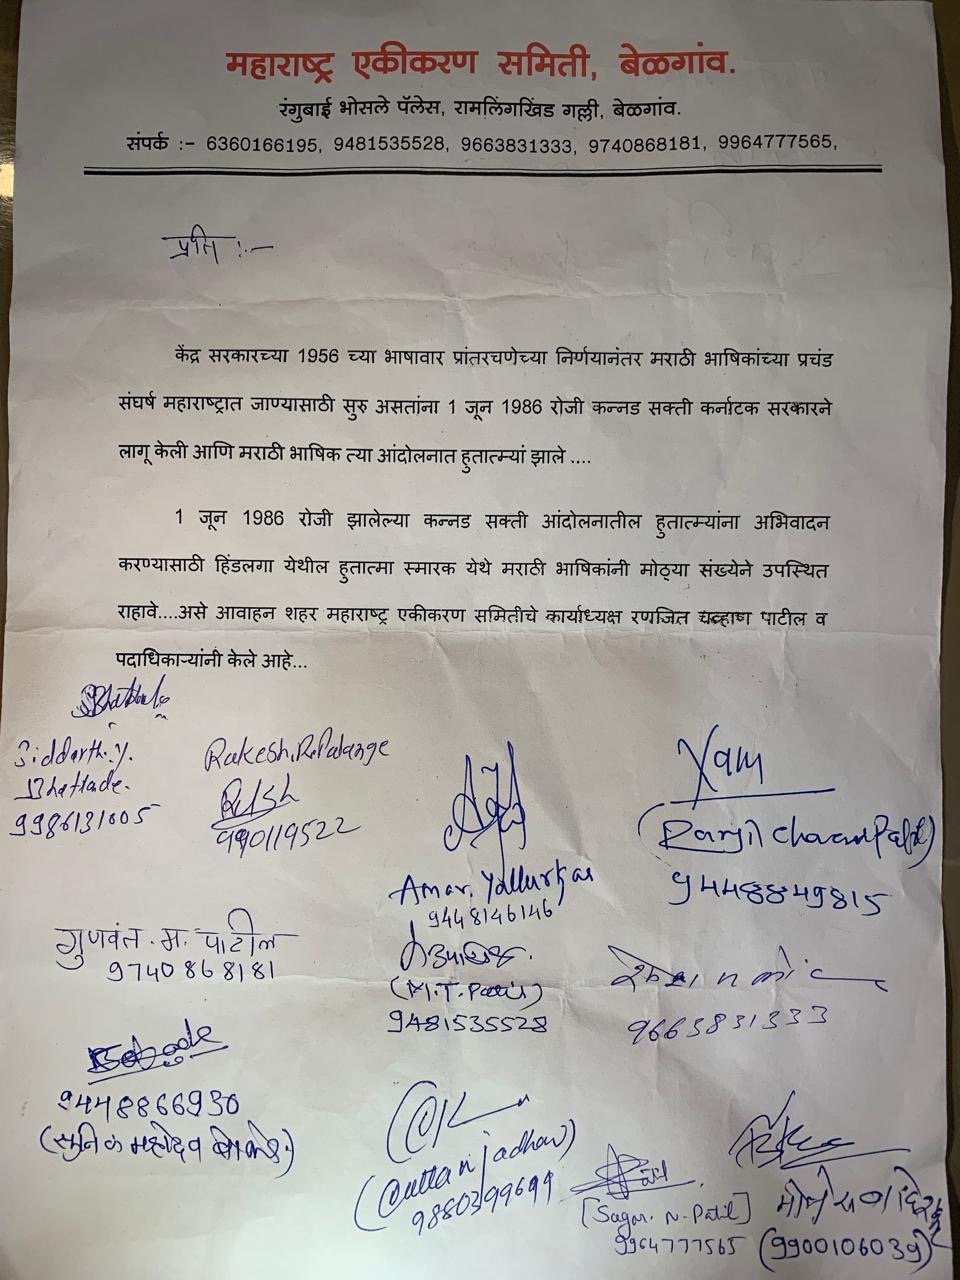 महाराष्ट्र एकीकरण समिती, बेळगांव.
रंगुबाई भोसले पॅलेस, रामलिंगखिंड गल्ली, बेळगांव.
संपर्क :- 6360166195, 9481535528, 9663831333, 9740868181, 9964777565,
प्रति :-
केंद्र सरकारच्या 1956 च्या भाषावार प्रांतरचणेच्या निर्णयानंतर मराठी भाषिकांच्या प्रचंड
संघर्ष महाराष्ट्रात जाण्यासाठी सुरु असतांना 1 जून 1986 रोजी कन्नड सक्ती कर्नाटक सरकारने
लागू केली आणि मराठी भाषिक त्या आंदोलनात हुतात्म्यां झाले ....
1 जून 1986 रोजी झालेल्या कन्नड सक्ती आंदोलनातील हुतात्म्यांना अभिवादन
करण्यासाठी हिंडलगा येथील हुतात्मा स्मारक येथे मराठी भाषिकांनी मोठ्या संख्येने उपस्थित
राहावे....असे आवाहन शहर महाराष्ट्र एकीकरण समितीचे कार्याध्यक्ष रणजित चव्हाण पाटील व
पदाधिकाऱ्यांनी केले आहे...
Siddarth.y.
Bhatkade.
9986131005
Rakesh.R.Palange
990119522
Amar. Yallurkar
9448146146
(Ranjit Chavan Patil)
9448849815
गुणवंत. म. पाटील
9740868181
(M.T. Patil)
9481535528
9663831333
9448866930
(सुनिल महादेव बोकडे)
(Datta jadhav)
9880399699
[Sagar. N. Patil]
9964777565
(9900106039)